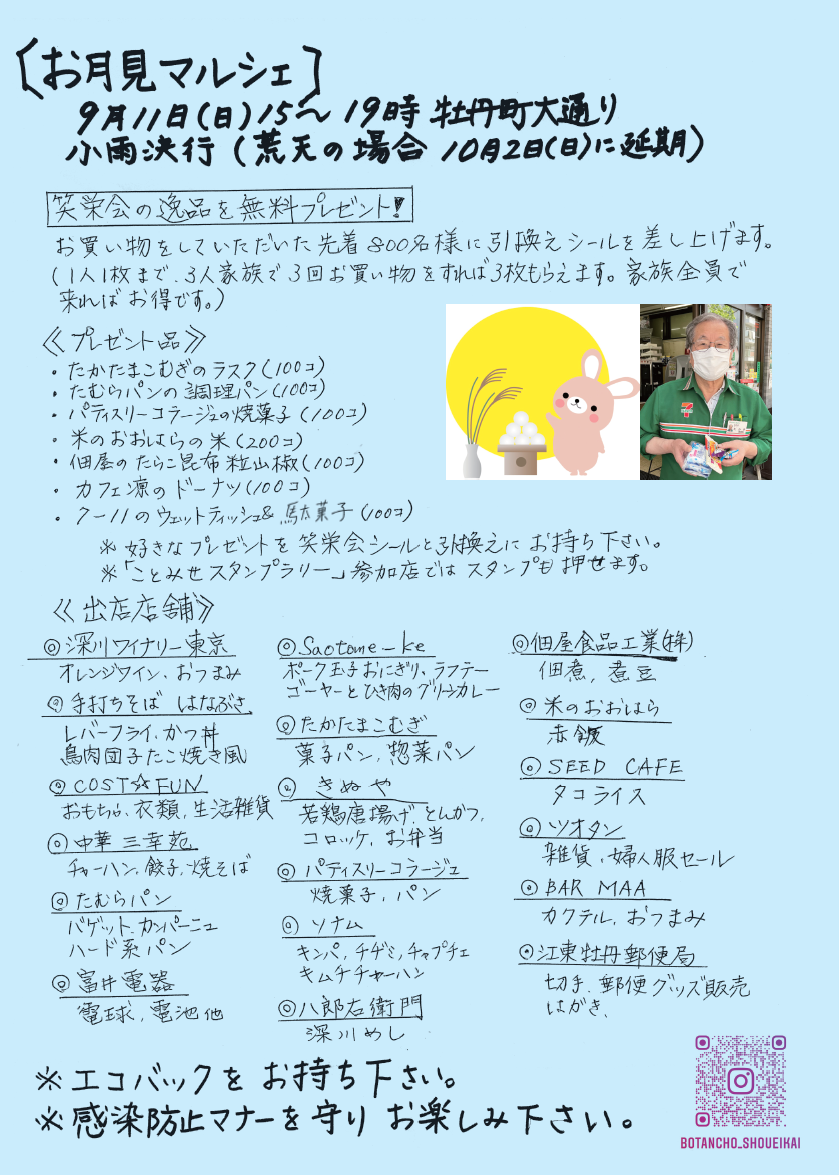 〔お月見マルシェ〕
9月11日(日)15〜19時 牡丹町大通り
小雨決行(荒天の場合 10月2日(日)に延期)
笑栄会の逸品を無料プレゼント!
お買い物をしていただいた先着800名様に引換えシールを差し上げます。
(1人1枚まで、3人家族で3回お買い物をすれば3枚もらえます。家族全員で
来ればお得です。)
≪プレゼント品≫
・たかたまこむぎのラスク(100コ)
・たむらパンの調理パン(100コ)
・パティスリーコラージュの焼菓子(100コ)
・米のおおはらの米(200コ)
・佃屋のたらこ昆布粒山椒(100コ)
・カフェ凉のドーナツ(100コ)
・7-11のウェットティッシュ&駄菓子(100コ)
※好きなプレゼントを笑栄会シールと引換えにお持ち下さい。
※「ことみせスタンプラリー」参加店ではスタンプも押せます。
≪出店店舗≫
◎深川ワイナリー東京
オレンジワイン、おつまみ
◎手打ちそば はなぶさ
レバーフライ、かつ丼
鳥肉団子たこ焼き風
◎COST☆FUN
おもちゃ、衣類、生活雑貨
◎中華 三幸苑
チャーハン、餃子、焼そば
◎たむらパン
バゲット、カンパーニュ
ハード系パン
◎富井電器
電球、電池他
◎Saotome-ke
ポーク玉子おにぎり、ラフテー
ゴーヤーとひき肉のグリーンカレー
◎たかたまこむぎ
菓子パン、惣菜パン
◎きぬや
若鶏唐揚げ、とんかつ、
コロッケ、お弁当
◎パティスリーコラージュ
焼菓子、パン
◎ソナム
キンパ、チヂミ、チャプチェ
キムチチャーハン
◎八郎右衛門
深川めし
◎佃屋食品工業(株)
佃煮、煮豆
◎米のおおはら
赤飯
◎SEED CAFE
タコライス
◎ツオタン
雑貨、婦人服セール
◎BAR MAA
カクテル、おつまみ
◎江東牡丹郵便局
切手、郵便グッズ販売
はがき、
※エコバックをお持ち下さい。
※感染防止マナーを守りお楽しみ下さい。
BOTANCHO_SHOUEIKAI